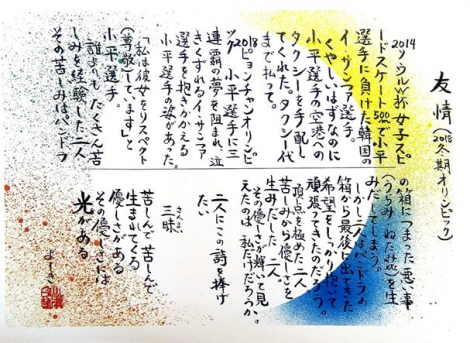 友情(2018冬期オリンピック)
2014ソウルW杯女子スピ
ードスケート500mで小平
選手に負けた韓国の
イ・サンファ選手。
くやしいはずなのに
小平選手の空港への
タクシーを手配し
てくれた。タクシー代
まで払って。
2018ピョンチャンオリンピ
ック 小平選手に三
連覇の夢を阻まれ、泣
きくずれるイ・サンファ
選手を抱きかかえる
小平選手の姿があった。
「私は彼女をリスペクト
(尊敬)しています」と
小平選手。
誰よりもたくさん苦
しみを経験した二人
その苦しみはパンドラ
の箱につまった悪い事
(うらみ・ねたみ恐)を生
みだしてしまう。
しかし二人はパンドラの
箱から最後に出てきた
希望をしっかり抱いて
頑張ってきたのだろう。
頂点を極めた二人
苦しみから優しさを
生みだした二人
その優しさが輝いて見
えたのは私だけだろうか。
二人にこの詩を捧げ
たい
三昧
さんまい
苦しんで苦しんで
生まれてくる
優しさがある
その優しさには
光がある